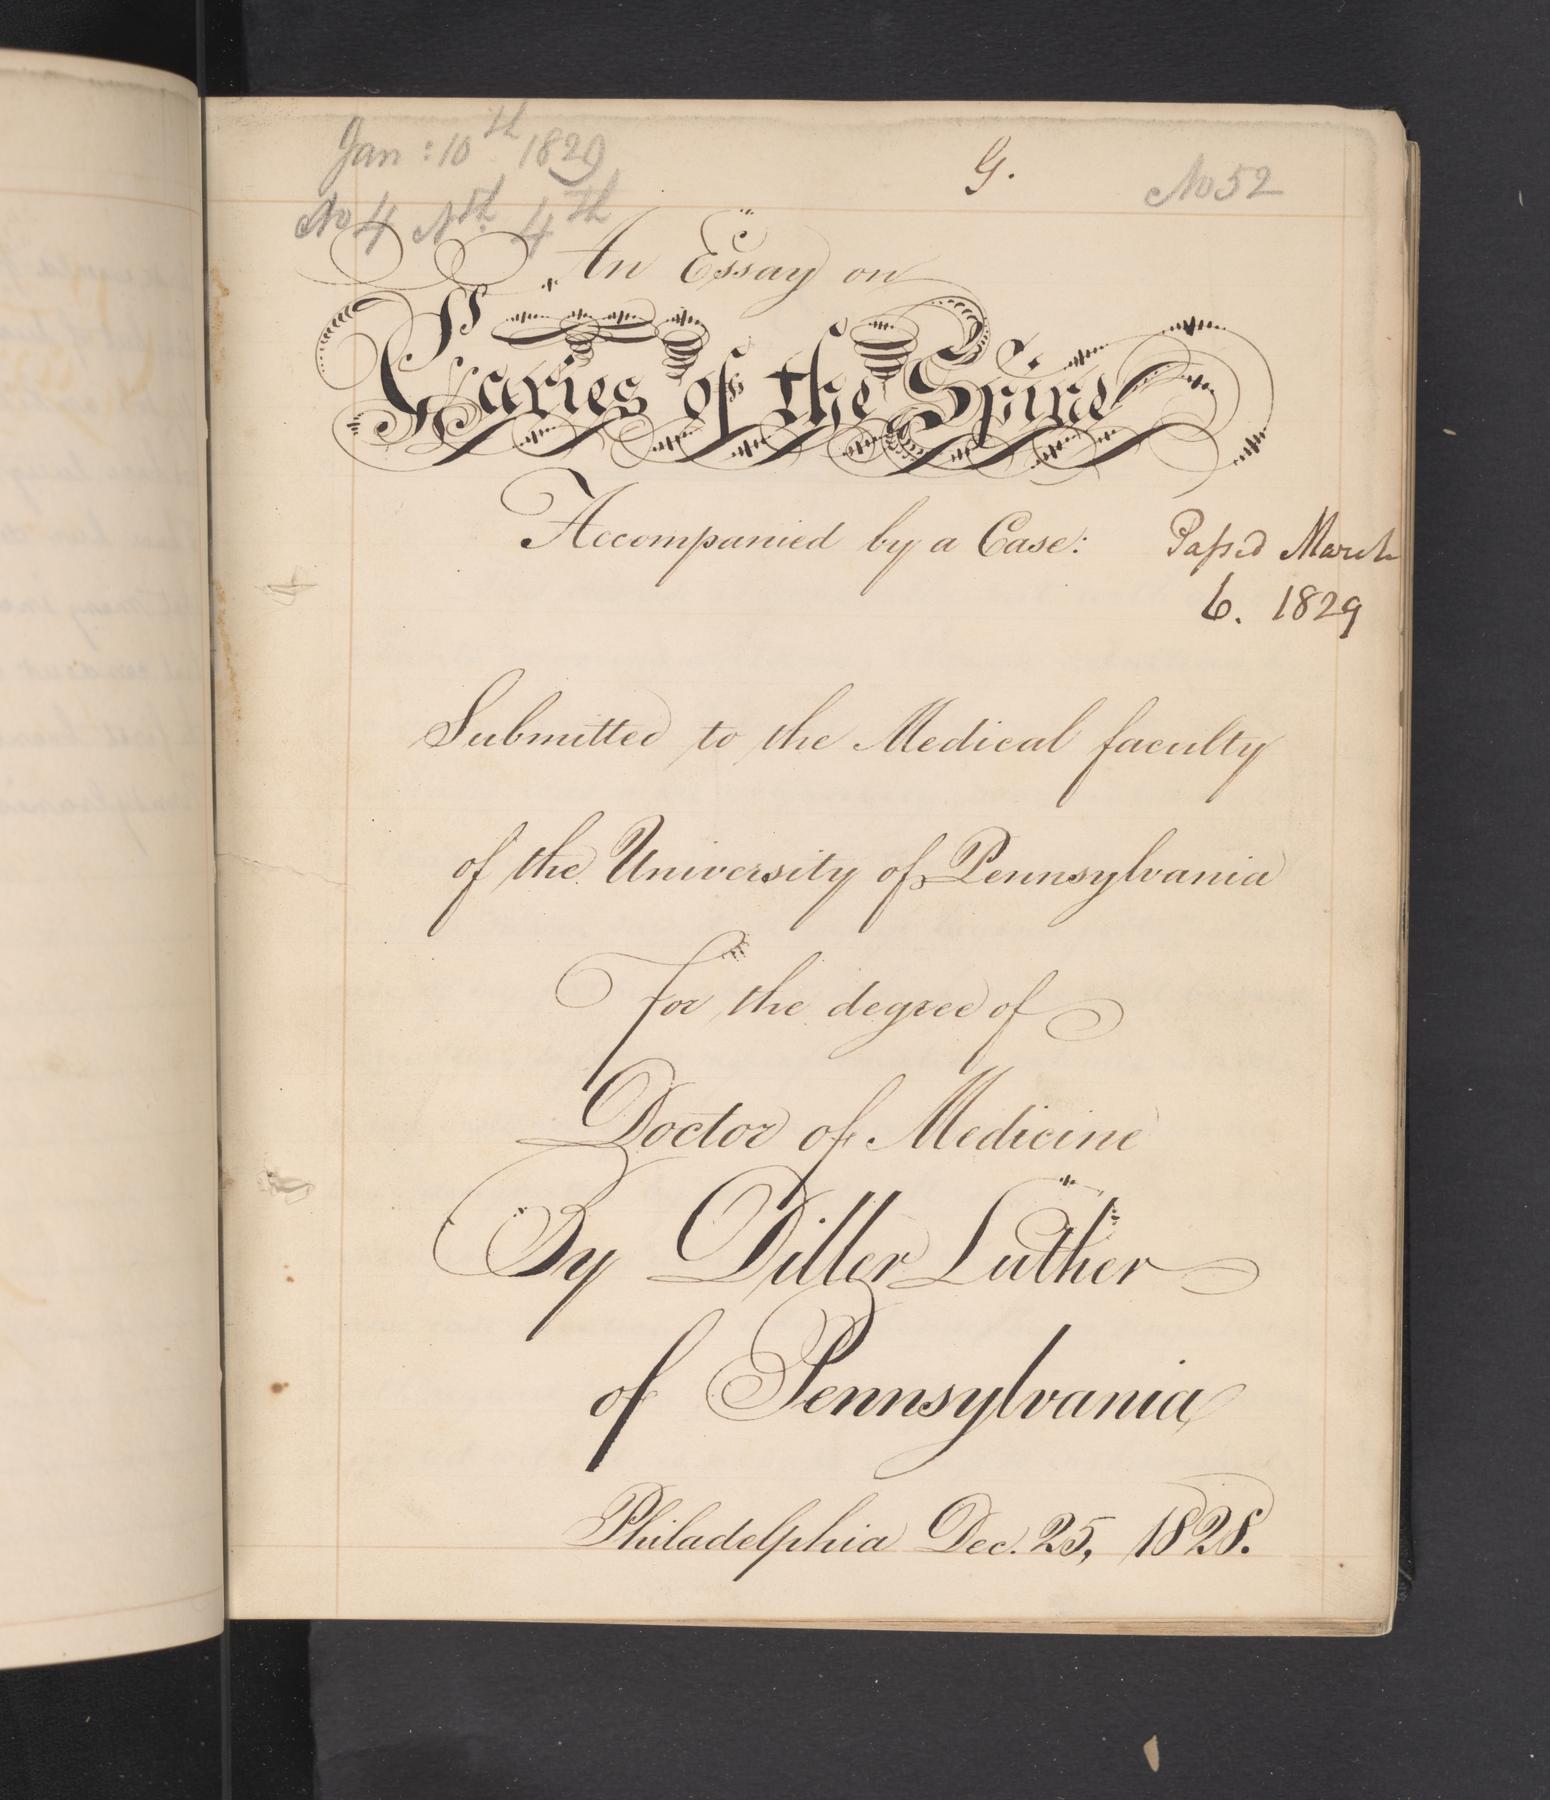 Jan: 10th 1829
G.
No 52
No 4 Nth. 4th
An Essay on
Caries of the Spine
Accompanied by a Case:
Passed March
6. 1829
Submitted to the Medical faculty
of the University of Pennsylvania
For the degree of
Doctor of Medicine
By Diller Luther
of Pennsylvania
Philadelphia Dec. 25, 1828.